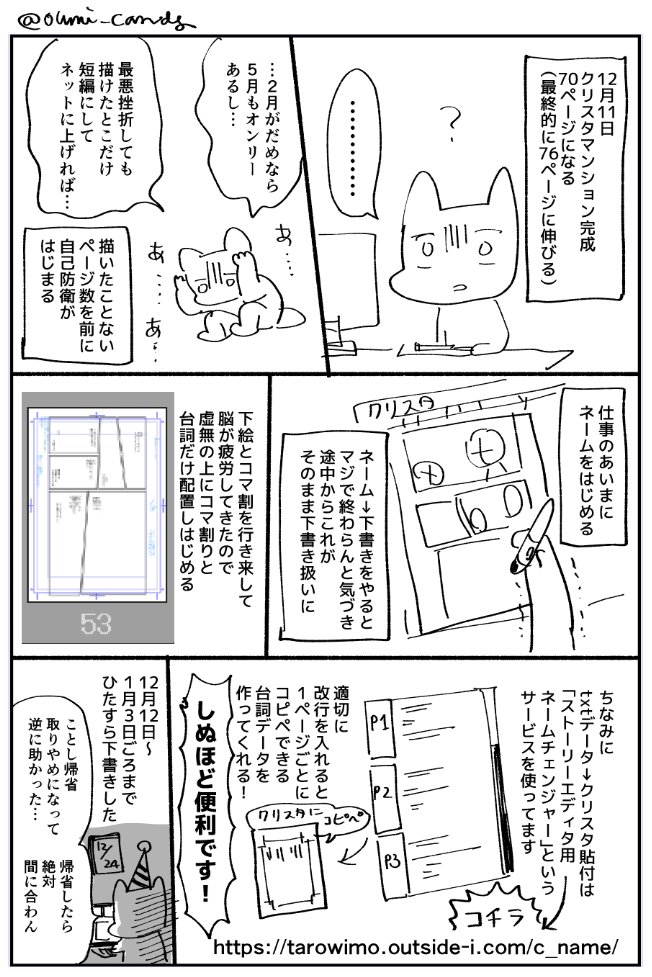 @oumi_cands
12月11日
クリスタマンション完成
70ページになる
(最終的に76ページに伸びる)
?
…………
…2月がだめなら
5月もオンリー
あるし…
最悪挫折しても
描けたとこだけ
短編にして
ネットに上げれば…
あ…
あ…
あ…
描いたことない
ページ数を前に
自己防衛が
はじまる
仕事のあいまに
ネームをはじめる
クリスタ
ネーム→下書きをやると
マジで終わらんと気づき
途中からこれが
そのまま下書き扱いに
下絵とコマ割を行き来して
脳が疲労してきたので
虚無の上にコマ割りと
台詞だけ配置しはじめる
53
ちなみに
txtデータ→クリスタ貼付は
「ストーリーエディタ用
ネームチェンジャー」という
サービスを使ってます
P1
P2
P3
適切に
改行を入れると
1ページごとに
コピペできる
台詞データを
作ってくれる!
クリスタに
コピペ
しぬほど便利です!
コチラ
https://tarowimo.outside-i.com/c_name/
12月12日〜
1月3日ごろまで
ひたすら下書きした
ことし帰省
取りやめになって
逆に助かった…
帰省したら
絶対
間に合わん
12/24